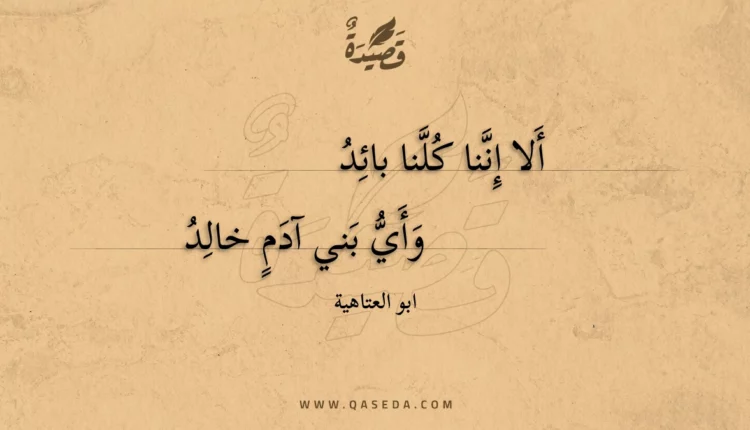 قَصِيْدَةٌ
أَلا إِنَّنا كُلَّنا بائِدُ
وَأَيُّ بَني آدَمٍ خالِدُ
ابو العتاهية
WWW.QASEDA.COM